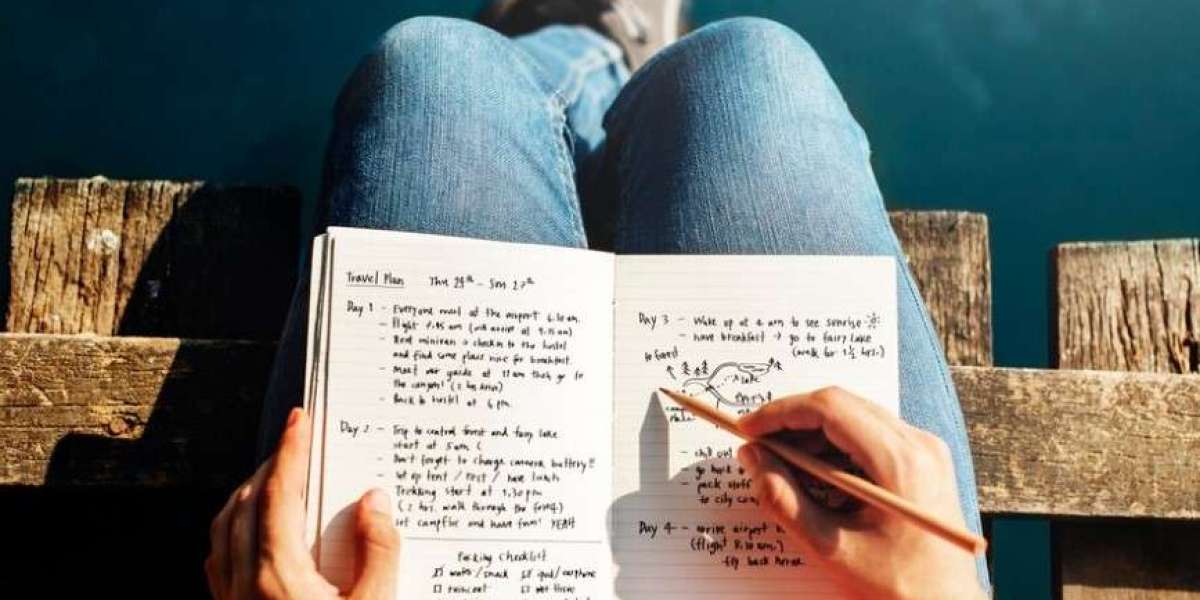 Travel Plan Thu 24th - Sun 27th
Day 1 - Everyone meet at the airport 6.10 am.
- Flight 7.45 am (will arrive at 9.15 am)
- Rent minivan & check in to the hostel
and find some place nice for breakfast.
- Meet our guide at 11 am then go to
the canyon! (2 hrs. drive)
- Back to hostel at 6 pm.
Day 2 - Trip to central forest and fairy lake
start at 5 am
- Don't forget to charge camera battery!!
- Set up tent / rest / have lunch
- Trekking start at 1.30 pm
(2 hrs. walk through the forest)
- Set campfire and have fun! YEAH
Packing Checklist
water / snack ipod / earphone
raincoat
Day 3 - Wake up at 4 am to see sunrise
- have breakfast → go to fairy lake
(walk for 1½ hrs.)
to forest
lake
- chill out
- go back to
- pack stuff
to city
Day 4 - arrive airport
(flight 8.10 am.)
fly back home